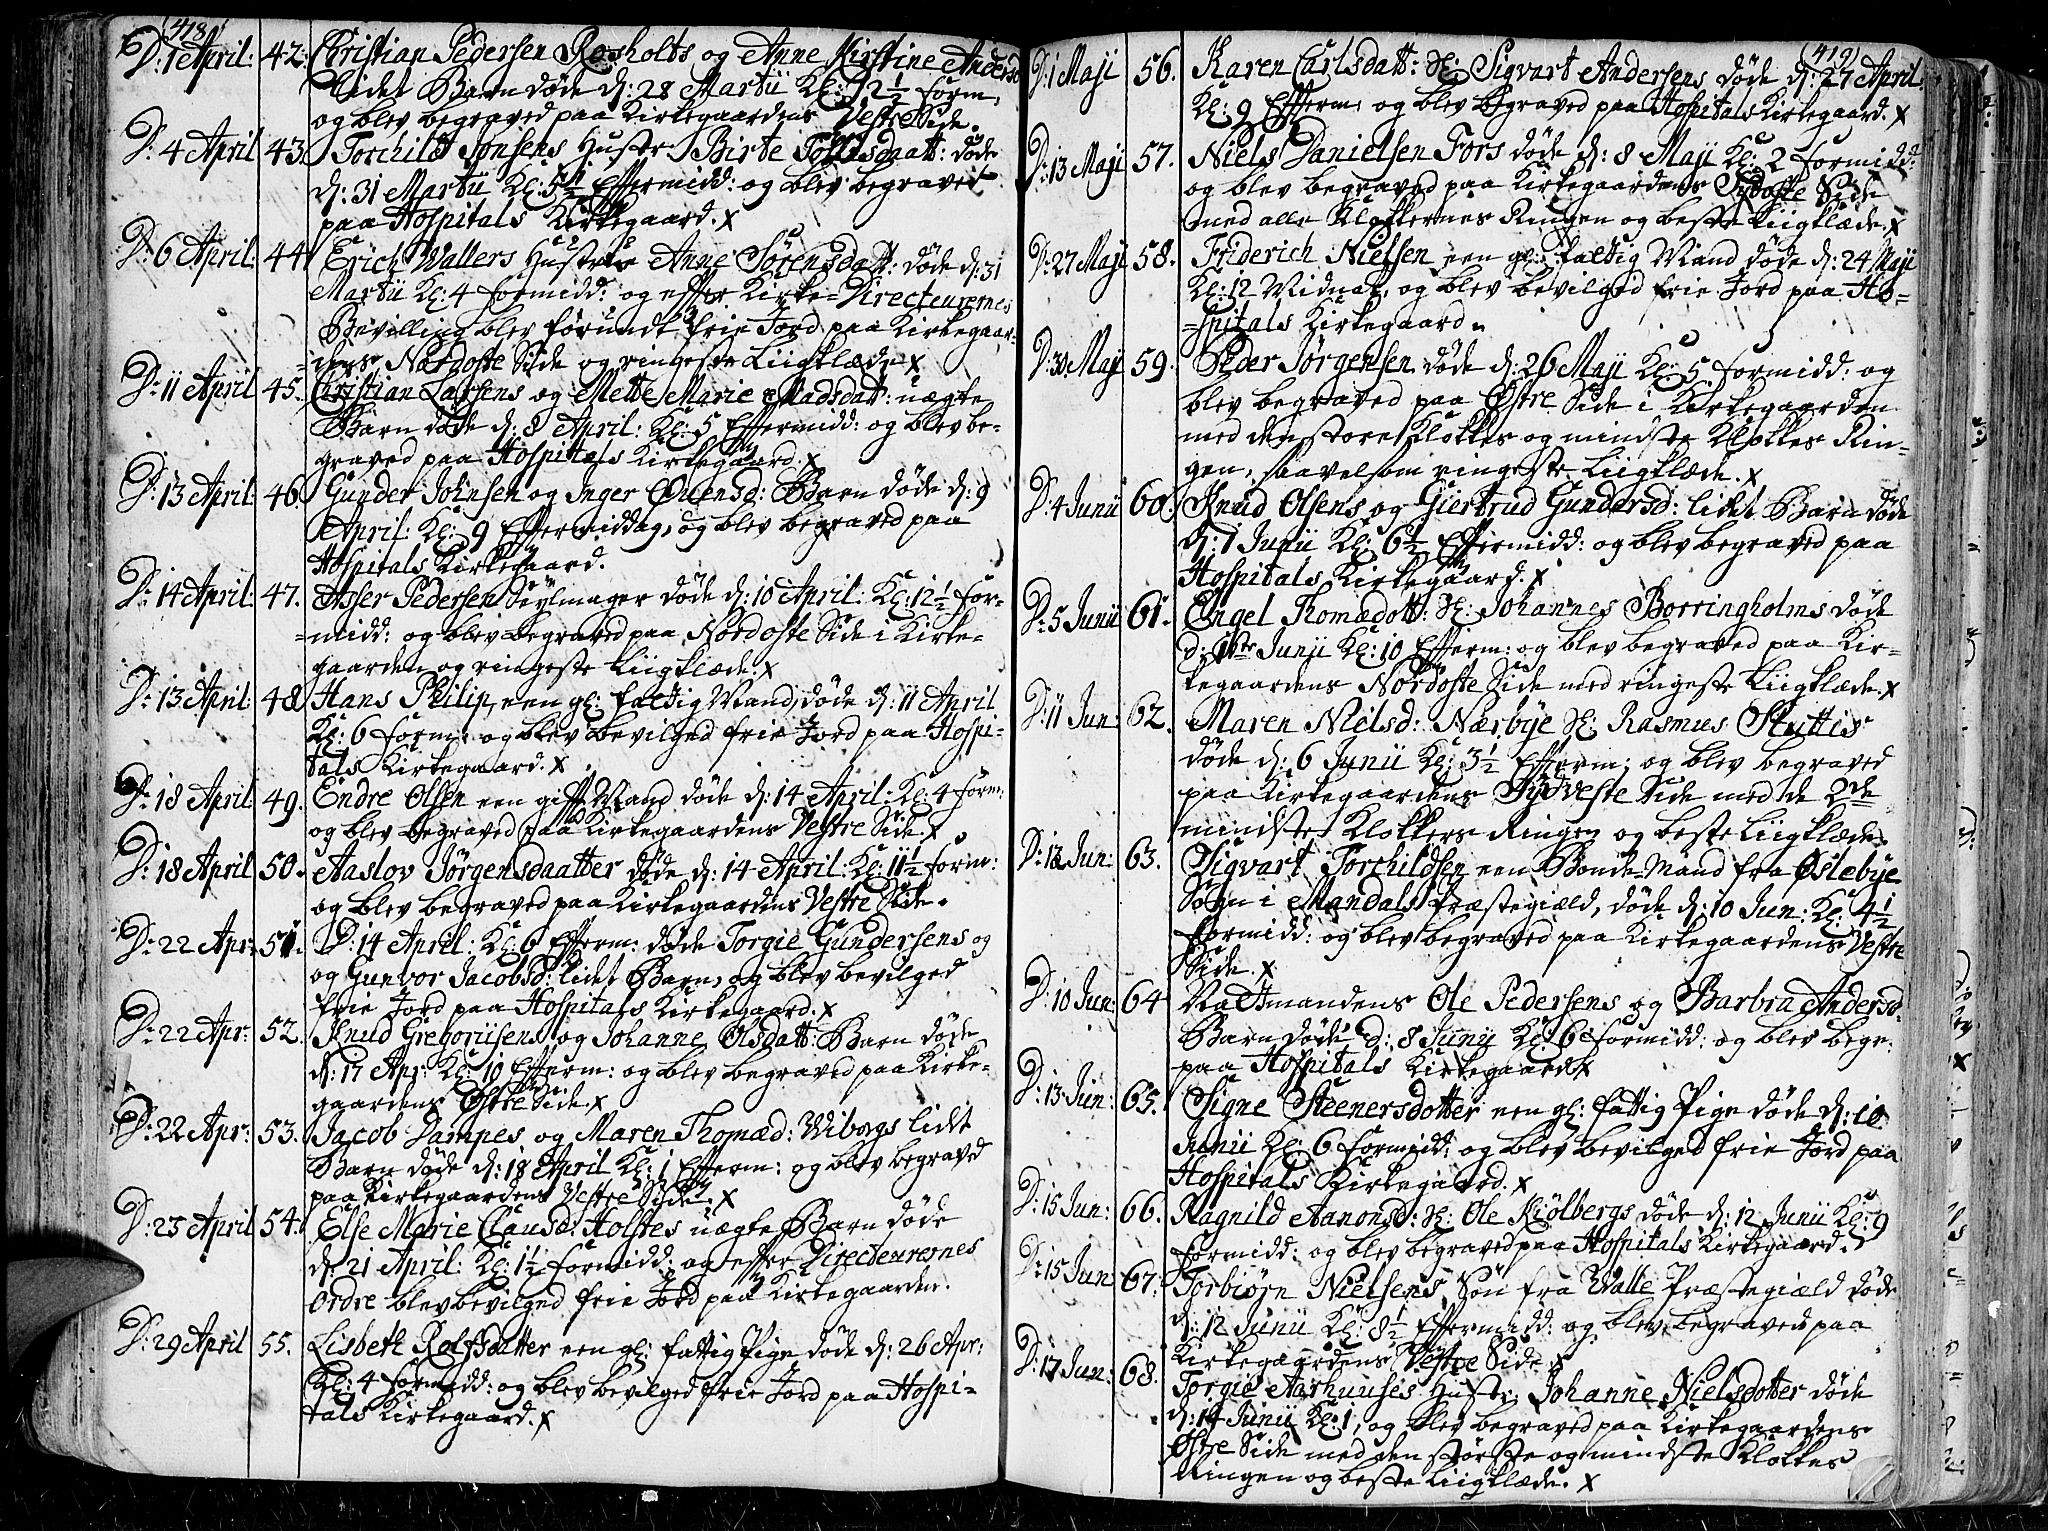 418
D: 1 April: 42. Christian Pedersen Rosholts og Anne Kirstine Andersd
lidet Barn døde d: 28 Martii Kl: 12½ form,
og blev begraved paa Kirkegaardens Vestre Side.
D: 4 April 43. Torchild Jonsens Hustr: Birte datt: døde
d: 31 Martii Kl: 5½ Effermidd: og blev begraved
paa Hospitals Kirkegaard. x
D: 6 April: 44 Erich Wallers Hustrue Anne Sørensdatt: døde d: 31
Martii Kl: 4 formidd: og effter Kirke-Directeurernes
Bevilling blev forundt frie Jord paa Kirkegaar-
=dens Nordoste Side og ringeste Liigklæde x
D: 11 April 45. Christian Larsens og Mette Marie Madsdatt: uægte
Barn døde d: 8 April: Kl: 5 Effermidd: og blev be-
graved paa Hospitals Kirkegaard. x
D: 13 April: 46. Gunder Johnsen og Inger Øuensd: Barn døde d: 9
April: Kl: 9 Effermiddag, og blev begraved paa
Hospitals Kirkegaard.
D: 14 April: 47. Asser Pedersen Seylmager døde d: 10 April: Kl: 12½ for-
=midd: og blev begraved paa Nordoste Side i Kirke-
gaarden og ringeste Liigklæde. x
D: 13 April: 48 Hans Philip, een gl: fattig Mand, døde d: 11 April
Kl: 6 form: og blev bevilged frie Jord paa Hospi-
tals Kirkegaard. x
D: 18 April 49. Endre Olsen een gift Mand døde d: 14 April: Kl: 4 form:
og blev begraved paa Kirkegaardens Vestre Side. x
D: 18 April 50. Aaslov Jørgensdaatter døde d: 14 April: Kl: 11½ form:
og blev begraved paa Kirkegaardens Vestre Side.
D: 22 Apr: 51. D: 14 April: Kl: 6 Efferm: døde Torgie Gundersens og
og Gunvor Jacobsd: lidet Barn, og blev bevilged
frie Jord paa Hospitals Kirkegaard. x
D: 22 Apr: 52. Knud Gregoriisens og Johanne Olsdatt: Barn døde
d: 17 Apr: Kl: 10 Efferm: og blev begraved paa Kirke-
gaardens Østre Side. x
D: 22 Apr: 53. Jacob Lampes og Maren Thomæd: Wiborgs lidet
Barn døde d: 18 April Kl: 1 Efferm: og blev begraved
paa Kirkegaardens Vestre Side. x
D: 23 April 54. Else Marie Clausd: Holstes uægte Barn døde
d: 21 April: Kl: 1½ formidd: og effter Directeurernes
Ordre blev bevilged frie Jord paa Kirkegaarden.
D: 29 April 55. Lisbeth Rolfsdatter een gl: fattig Pige døde d: 26 Apr:
Kl: 4 formidd: og blev bevilged frie Jord paa Hospi-
tals Kirkegaard. x
419
D: 1 Maji 56. Karen Carlsdatt: Sl: Sigvart Andersens døde d: 27 April
Kl: 9 Efferm: og blev begraved paa Hospitals Kirkegaard. x
D: 13 Maji 57. Niels Danielsen Fors døde d: 8 Maji Kl: 2 formidd:
og blev begraved paa Kirkegaardens Sydoste Side
med alle Klokkernes Ringen og beste Liigklæde. x
D: 27 Maji 58. Friderich Nielsen een gl: fattig Mand døde d: 24 Maji
Kl: 12 Midnat, og blev bevilged frie Jord paa Ho-
=spitals Kirkegaard.
D: 30 Maji 59. Peder Jørgensen døde d: 26 Maji Kl: 5 formidd: og
blev begraved paa Østre Side i Kirkegaarden
med den store Klokkes og mindste Klokkes Rin-
gen, saavelsom ringeste Liigklæde. x
D: 4 Junii 60. Knud Olsens og Giertrud Gundersd: lidet Barn døde
d: 1 Junii Kl: 6½ Effermidd: og blev begraved paa
Hospitals Kirkegaard. x
D: 5 Junii 61. Engel Thomædott: Sl: Johannes Borringholms døde
d: 1ste Junji Kl: 10 Efferm: og blev begraved paa Kir-
kegaardens Nordoste Side med ringeste Liigklæde. x
D: 11 Jun: 62. Maren Nielsd: Nærbye Sl: Rasmus Stuttis
døde d: 6 Junii Kl: 3½ Efferm: og blev begraved
paa Kirkegaardens Sydveste Side med de 2de
mindste Klokkers Ringen og beste Liigklæde.
D: 13 Jun: 63. Sigvart Torchildsen een Bonde-Mand fra Øslebye
Sogn i Mandals Præstegiæld, døde d: 10 Jun: Kl: 4½
formidd: og blev begraved paa Kirkegaardens Vestre
Side. x
D: 10 Jun: 64 Natmandens Ole Pedersens og Barbra Andersd:
Barn døde d: 8 Junii Kl: 6 formidd: og blev begr:
paa Hospitals Kirkegaard x
D: 13 Jun: 65. Signe Steenersdotter een gl: fattig Pige døde d: 10
Junii Kl: 6 formidd: og blev bevilged frie Jord paa
Hospitals Kirkegaard. x
D: 15 Jun: 66. Ragnild Aanonsd: Sl: Ole Kiölbergs døde d: 12 Junii Kl: 9
formidd: og blev begraved paa Hospitals Kirkegaard.
D: 15 Jun 67. Torbiørn Nielsens Søn fra Walle Præstegiæld døde
d: 12 Junii Kl: 8½ Effermidd: og blev begraved paa
Kirkegaardens Vestre Side x
D: 17 Jun: 68. Torgie Aarhuuses Hustr: Johanne Nielsdotter døde
d: 14 Junii Kl: 1, og blev begraved paa Kirkegaardens
Østre Side med den største og mindste Klokkes
Ringen og beste Liigklæde. x